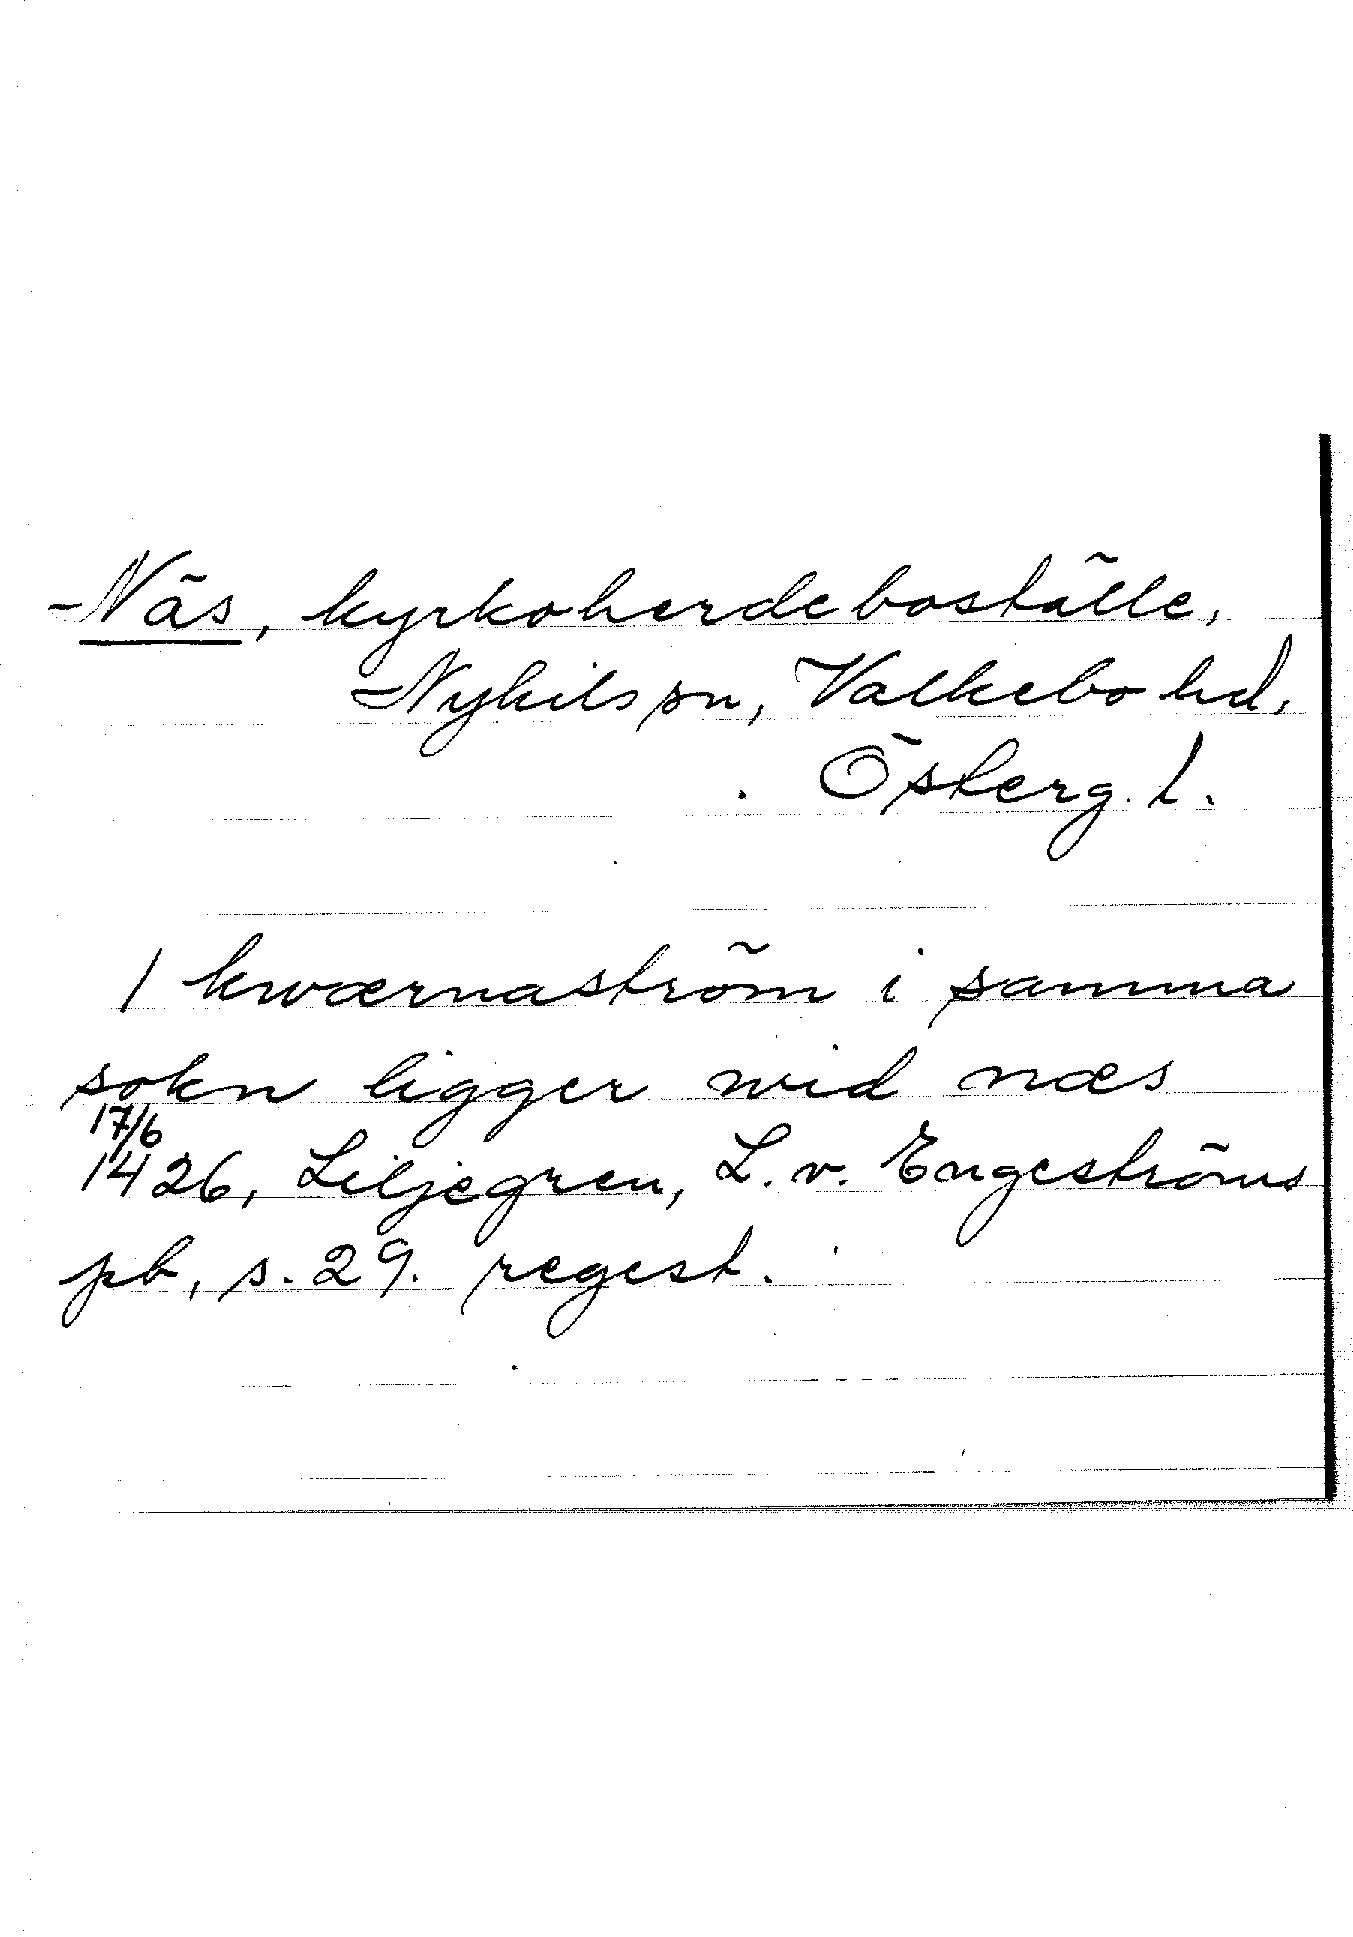 Näs, kyrkoherdeboställe,
Nykils sn, Valkebo hd,
Österg. l.
1 kwærnaström i samma
sokn ligger wid næs
17/6
1426, Liljegren, L. v. Engeströms
pb, s. 29. regest.